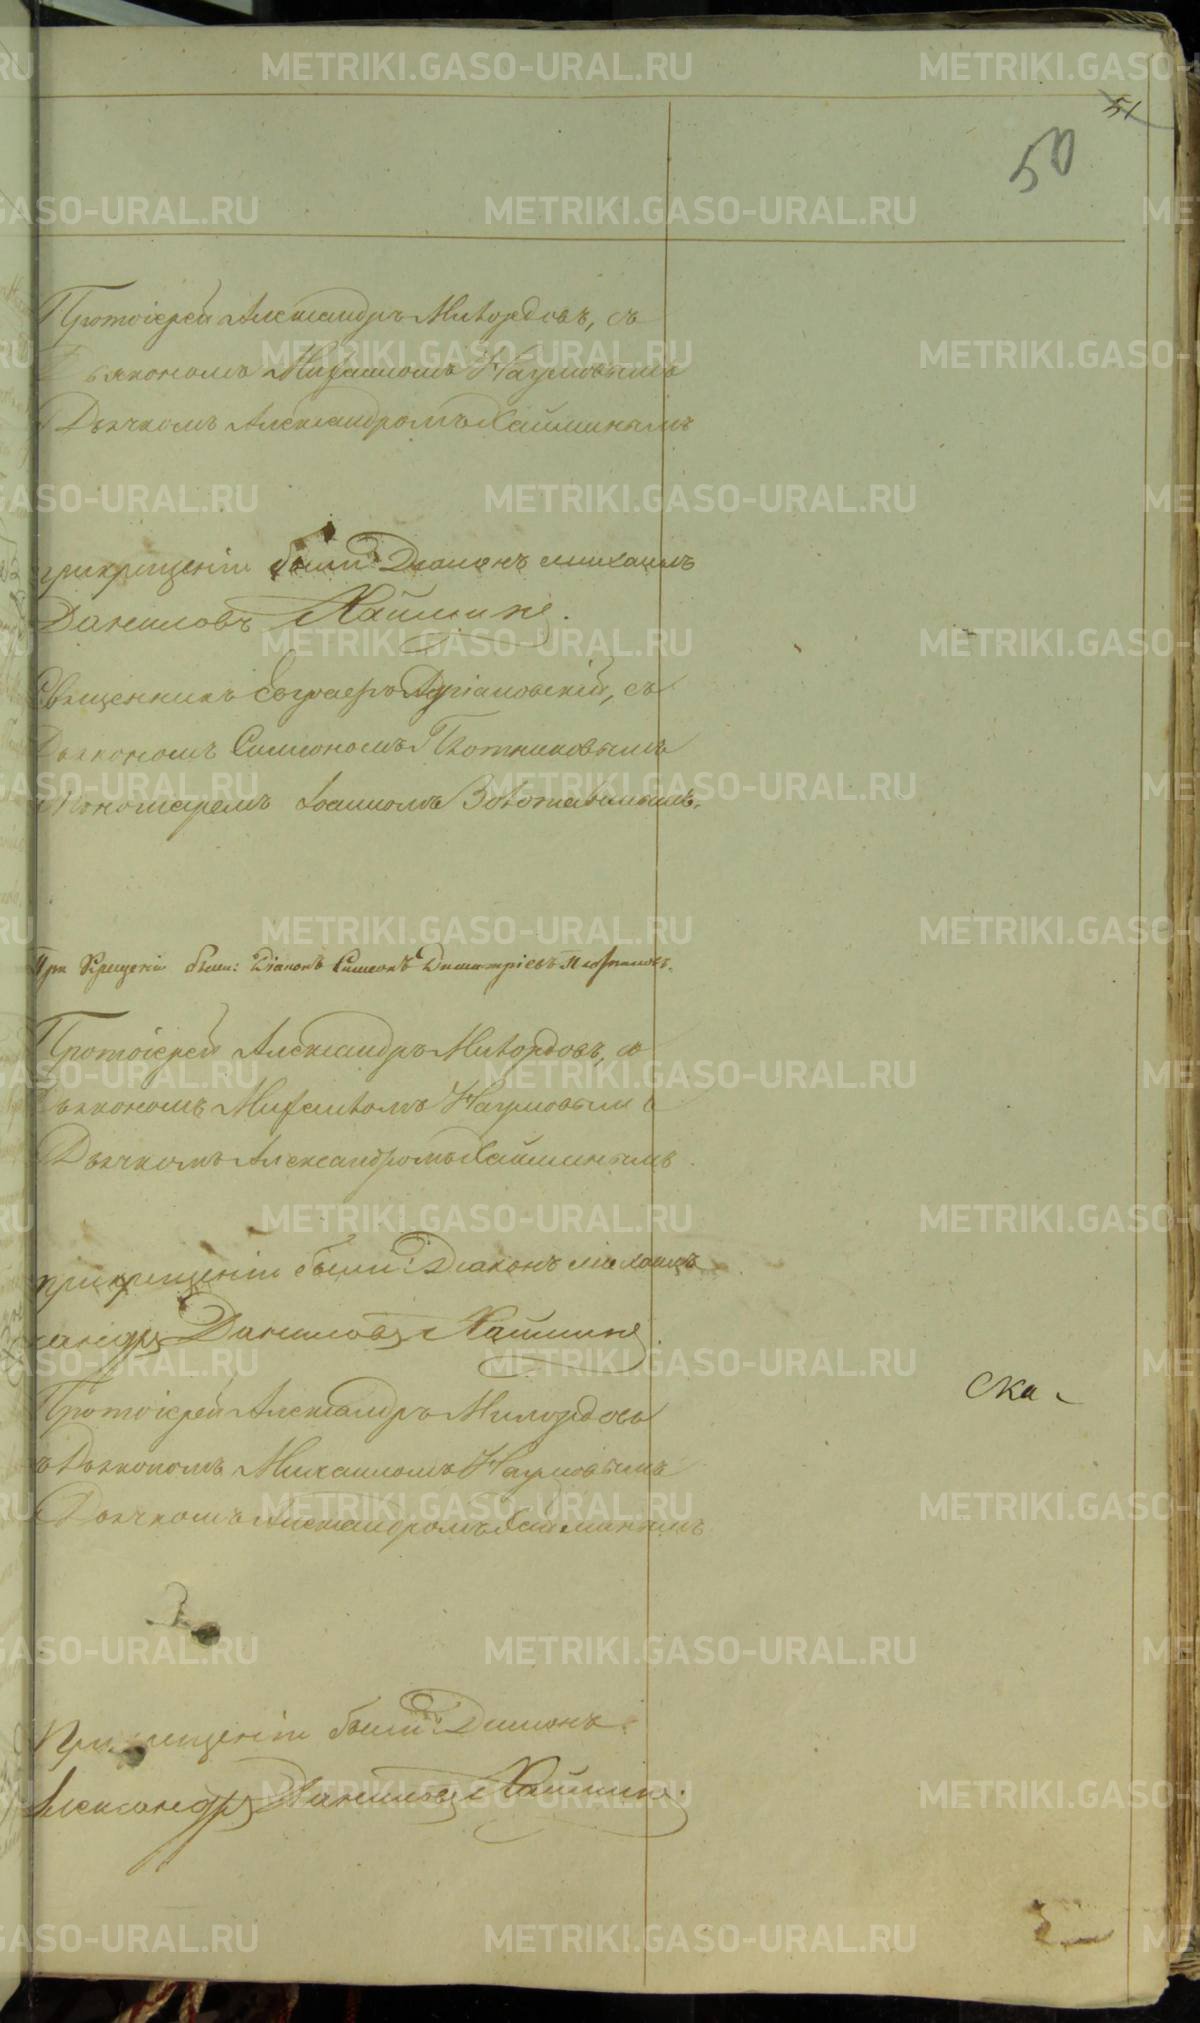 51
50
Протоіерей Александръ Милордовъ, съ
Діякономъ Михаиломъ Наумовымъ
Дьячкомъ Александромъ Хайминымъ
прикрещеніи были: Діаконъ михаилъ
Даниловъ Хайминъ.
Священникъ Евграфъ Адріановскій, съ
Дьякономъ Симеономъ Плотниковымъ
Пономаремъ Іоанномъ
При Крещеніи были: Діаконъ Симеонъ Димитріевъ Плотниковъ.
Протоіерей Александръ Милордовъ, съ
Дьякономъ Михаиломъ Наумовымъ
Дьячкомъ Александромъ Хайминымъ
прикрещеніи были: Діаконъ михаилъ
Даниловъ Хайминъ.
Протоіерей Александръ Милордовъ
съ Дьякономъ Михаиломъ Наумовымъ
Дьячкомъ Александромъ Хайминымъ
ска-
При крещеніи были: Діаконъ
Александръ Даниловъ Хайминъ.
METRIKI.GASO-URAL.RU